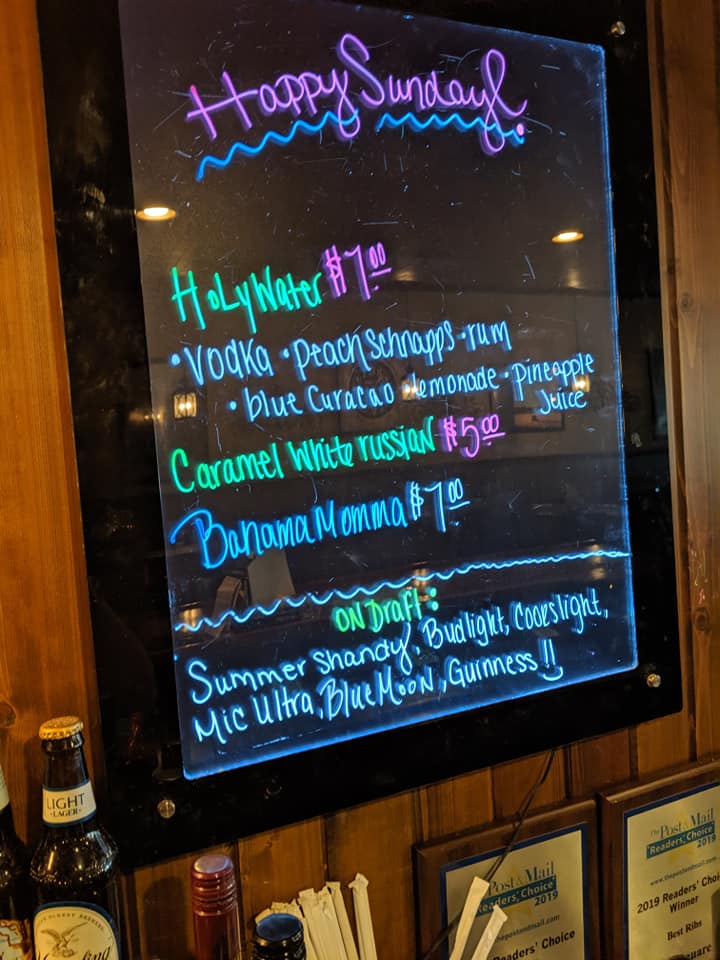 Happy Sunday!
Holy Water $7.00
• Vodka • Peach Schnapps • rum
• blue Curacao • lemonade • Pineapple
Juice
Caramel White russian $5.00
Bahama Momma $7.00
on Draft:
Summer Shandy, Budlight, Coorslight,
Mic Ultra, Blue Moon, Guinness!!
LIGHT
LAGER
The Post & Mail
Readers' Choice
2019
www.thepostandmail.com
2019 Readers' Choi
Winner
Best Ribs
Post & Mail
Readers' Choice
2019
thepostandmail.com
Readers' Choice